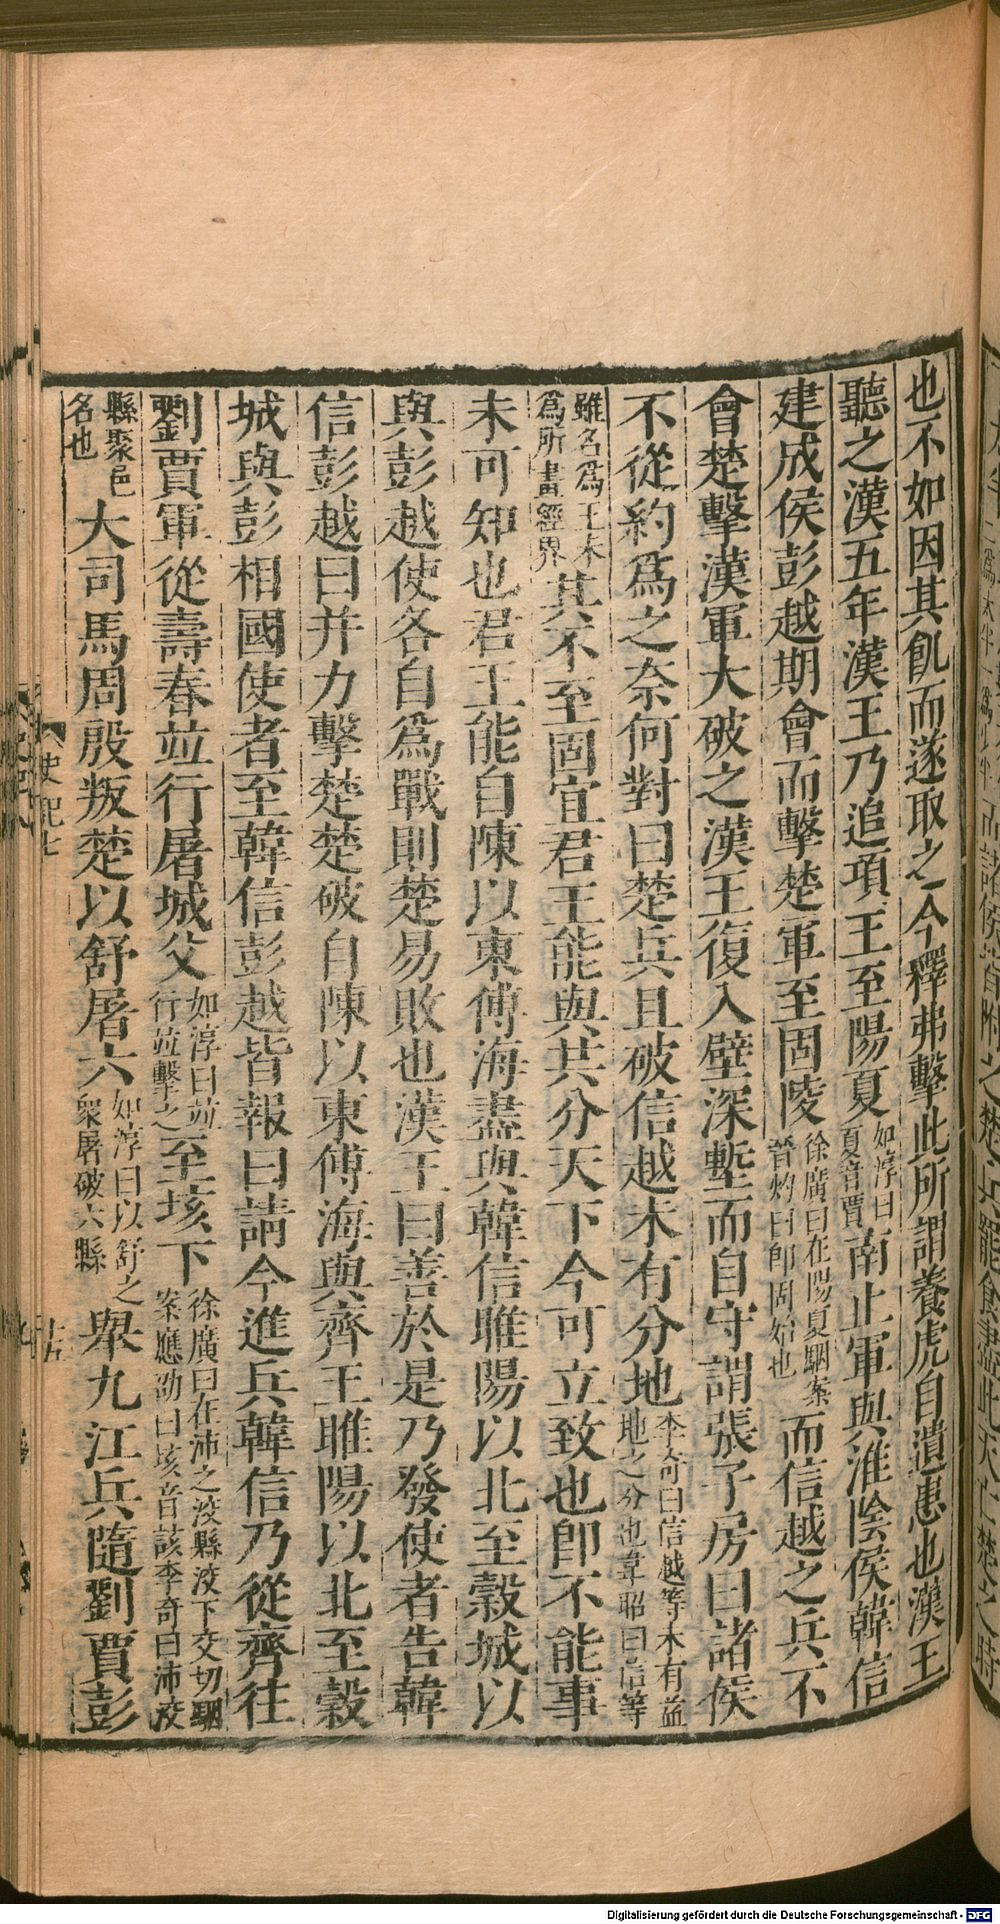 也不如因其飢而遂取之今釋弗擊此所謂養虎自遺患也漢王
聽之漢五年漢王乃追項王至陽夏如淳曰夏音賈南止軍與淮陰侯韓信
建成侯彭越期會而擊楚軍至固陵徐廣曰在陽夏駰案晉灼曰即固始也而信越之兵不
會楚擊漢軍大破之漢王復入壁深塹而自守謂張子房曰諸侯
不從約爲之奈何對曰楚兵且破信越未有分地李奇曰信越等未有益地之分也韋昭曰信等
雖名爲王未爲所畫經界其不至固宜君王能與共分天下今可立致也即不能事
未可知也君王能自陳以東傅海盡與韓信睢陽以北至穀城以
與彭越使各自爲戰則楚易敗也漢王曰善於是乃發使者告韓
信彭越曰并力擊楚楚破自陳以東傅海與齊王睢陽以北至穀
城與彭相國使者至韓信彭越皆報曰請今進兵韓信乃從齊往
劉賈軍從壽春並行屠城父如淳曰並行並擊之至垓下徐廣曰在沛之洨縣洨下交切駰案應劭曰垓音該李奇曰沛洨
縣聚邑名也大司馬周殷叛楚以舒屠六如淳曰以舒之衆屠破六縣舉九江兵隨劉賈彭
史記七
十五
Digitalisierung gefördert durch die Deutsche Forschungsgemeinschaft - DFG